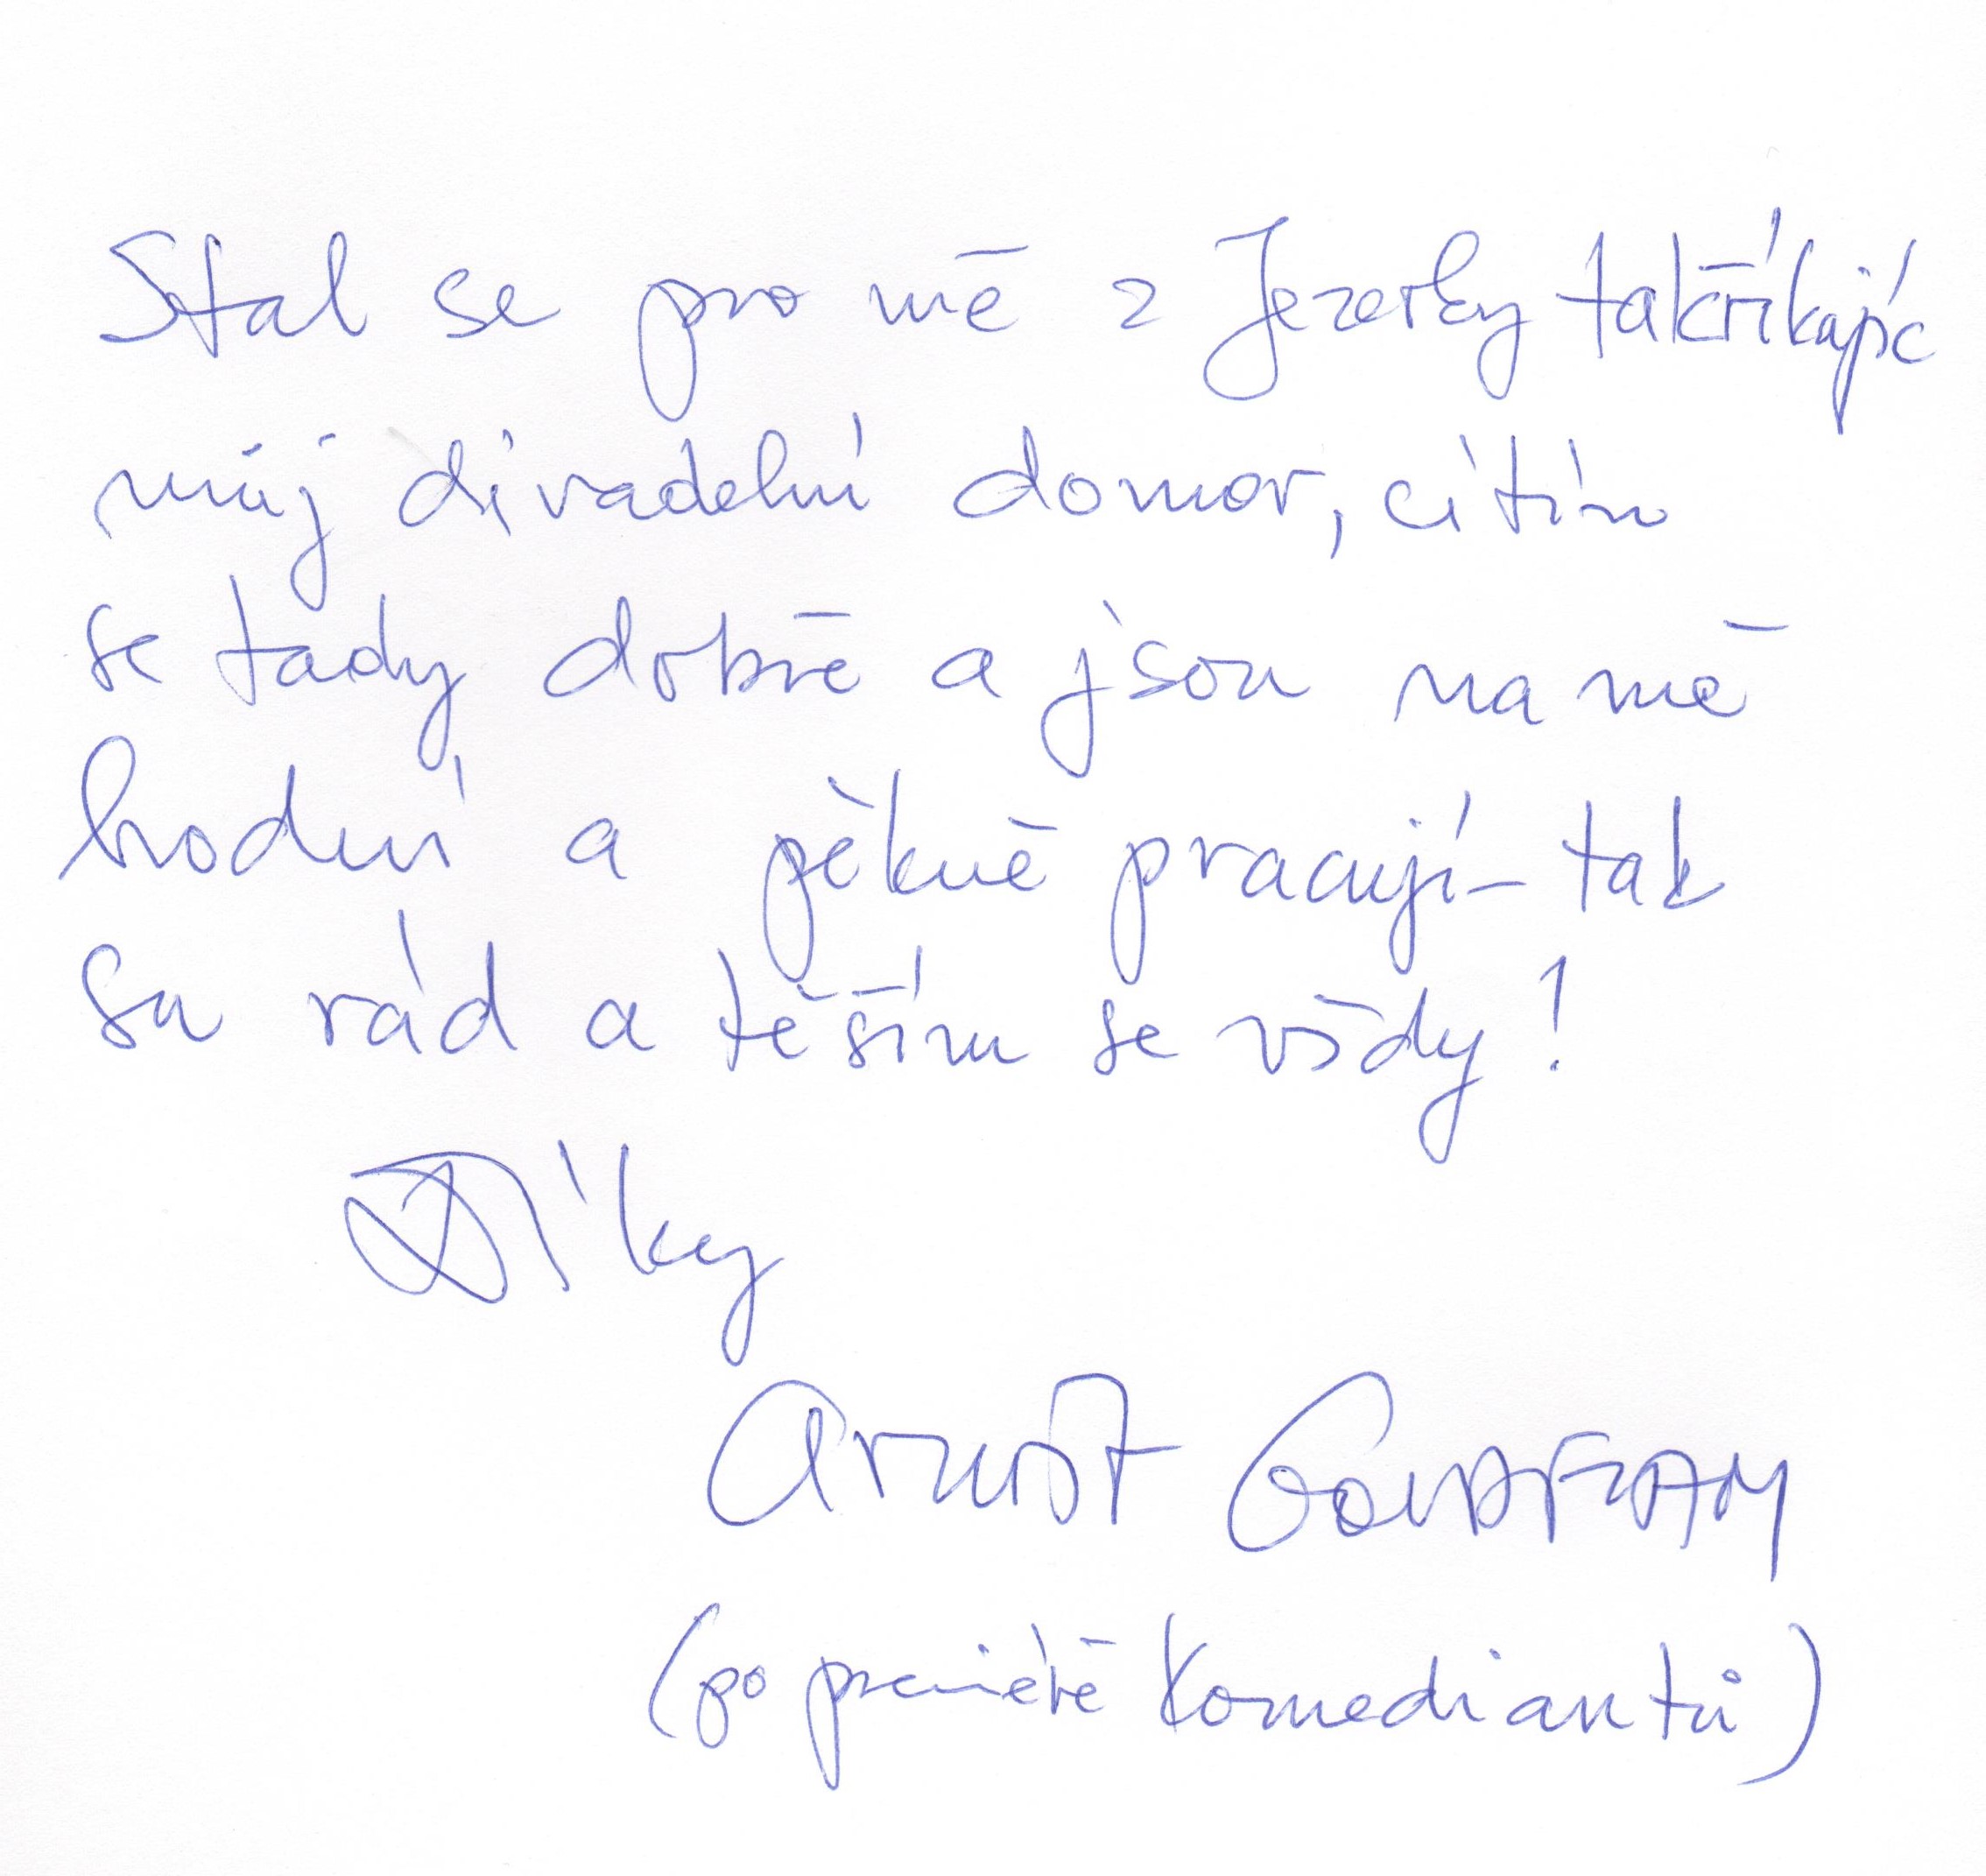 Stal se pro mě z Jezerky takříkajíc
můj divadelní domov, cítím
se tady dobře a jsou na mě
hodní a pěkně pracují – tak
su rád a těším se vždy!
Díky
Arnošt GOLDFLAM
(po premiéře Komediantů)